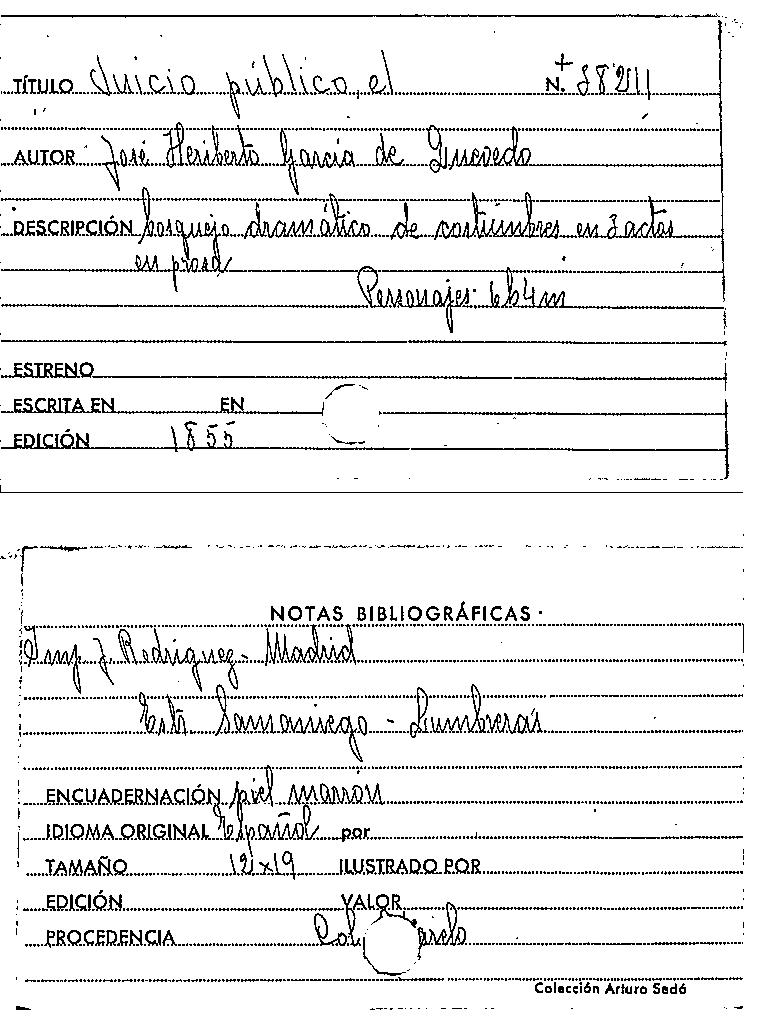 TÍTULO Juicio público, el N. + 88211
AUTOR José Heriberto García de Quevedo
DESCRIPCIÓN bosquejo dramático de costumbres en 3 actos
en prosa
Personajes: 6h 4m
ESTRENO
ESCRITA EN EN
EDICIÓN 1855
NOTAS BIBLIOGRÁFICAS
Imp. J. Rodriguez - Madrid
Estr. Samaniego - Lumbreras
ENCUADERNACIÓN piel marrón
IDIOMA ORIGINAL Español por
TAMAÑO 12x19 ILUSTRADO POR
EDICIÓN VALOR
PROCEDENCIA Col.
Colección Arturo Sedó